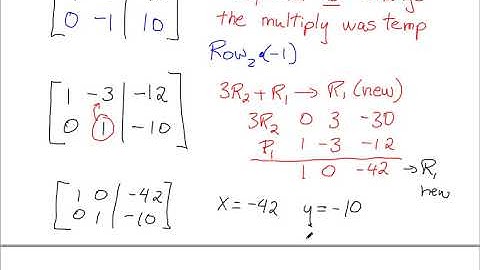 0 -1 | 10
the multiply was temp
Row₂·(-1)
1 -3 | -12
0 1 | -10
3R₂ + R₁ → R₁ (new)
3R₂ 0 3 -30
R₁ 1 -3 -12
1 0 -42 → R₁ new
1 0 | -42
0 1 | -10
x = -42 y = -10